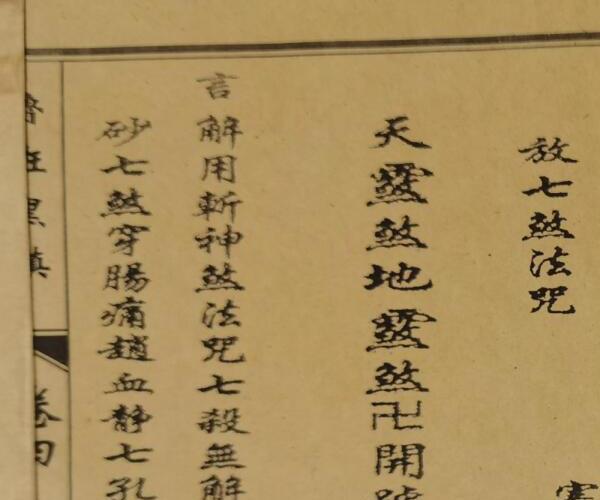 放七煞法咒
天靈煞地靈煞卍開
言解用斬神煞法咒七殺無解
砂七煞穿腸痛趙血静七孔
魯班黑鎮
卷四